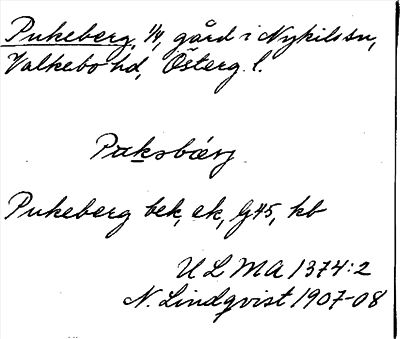 Pukeberg, 1/4, gård i Nykils sn,
Valkebo hd, Österg. l.
Puksbærj
Pukeberg bek, ek, G45, kb
ULMA 1374:2
N. Lindqvist 1907-08